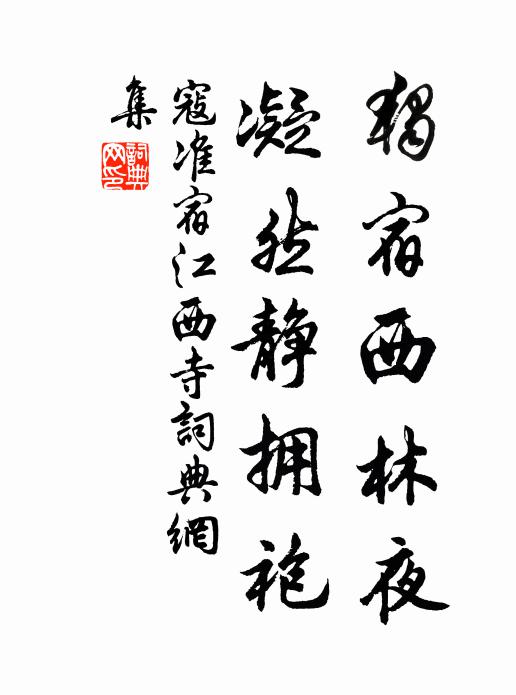 獨宿西林夜
凝然静拥袍
寇准宿江西寺詞典網
集
詞典網印